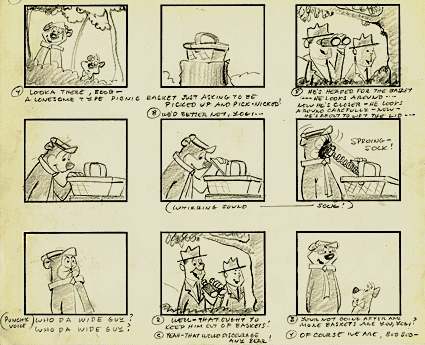 Y LOOKA THERE, BOOB-
A LONESOME TYPE PICNIC BASKET JUST ASKING TO BE
PICKED UP AND PICK-NICKED!
B WE'D BETTER NOT, YOGI--
R HE'S HEADED FOR THE BASKET
--- HE LOOKS AROUND ---
NOW HE'S CLOSER - HE LOOKS
AROUND CAREFULLY - NOW -
HE'S ABOUT TO LIFT THE LID ---
SPROING-
SOCK!
(WHIRRING SOUND SOCK!)
(PUNCHY VOICE)
WHO DA WIDE GUY?
WHO DA WIDE GUY?
R WELL- THAT OUGHT TO
KEEP HIM OUT OF BASKETS.
C YEAH- THAT WOULD DISCOURAGE
ANY BEAR
B YOUR NOT GOING AFTER ANY
MORE BASKETS ARE YOU, YOGI?
Y OF COURSE WE ARE, BOO BOO-